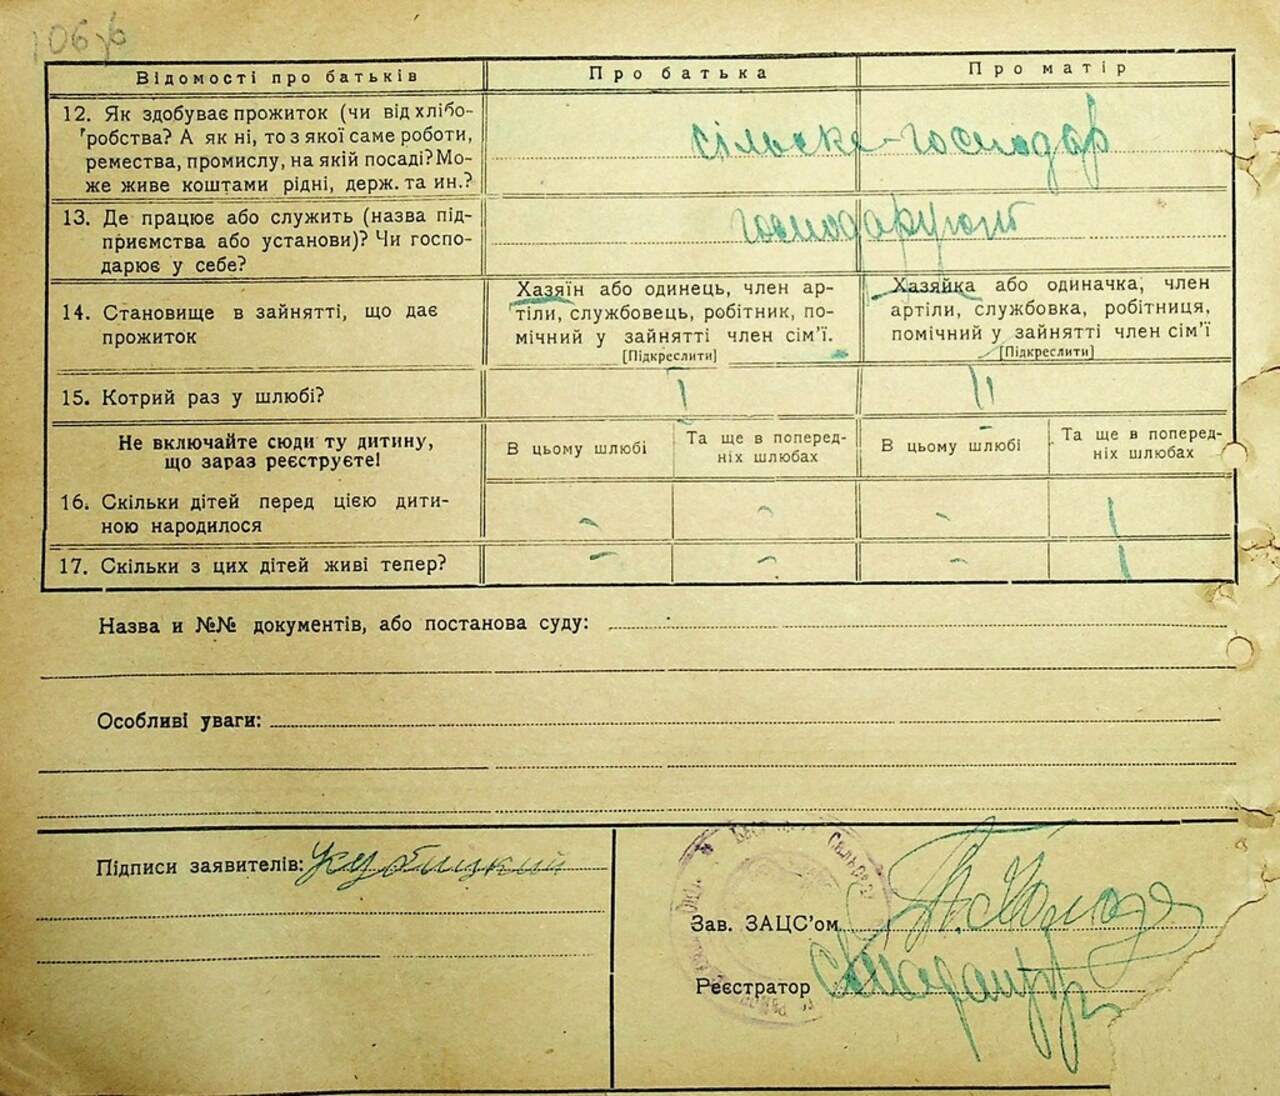 106зв
Відомості про батьків
Про батька
Про матір
12. Як здобуває прожиток (чи від хлібо-
робства? А як ні, то з якої саме роботи,
ремества, промислу, на якій посаді? Мо-
же живе коштами рідні, держ. та ин.?
сільське-господар
13. Де працює або служить (назва під-
приємства або установи)? Чи госпо-
дарює у себе?
господарують
14. Становище в зайнятті, що дає
прожиток
Хазяїн або одинець, член ар-
тіли, службовець, робітник, по-
мічний у зайнятті член сім'ї.
[Підкреслити]
Хазяйка або одиначка, член
артіли, службовка, робітниця,
помічний у зайнятті член сім'ї
[Підкреслити]
15. Котрий раз у шлюбі?
I
II
Не включайте сюди ту дитину,
що зараз реєструєте!
В цьому шлюбі
Та ще в поперед-
ніх шлюбах
В цьому шлюбі
Та ще в поперед-
ніх шлюбах
16. Скільки дітей перед цією дити-
ною народилося
- - - 1
17. Скільки з цих дітей живі тепер?
- - - 1
Назва и №№ документів, або постанова суду:
Особливі уваги:
Підписи заявителів: Кубицкий
Зав. ЗАЦС'ом
Реєстратор